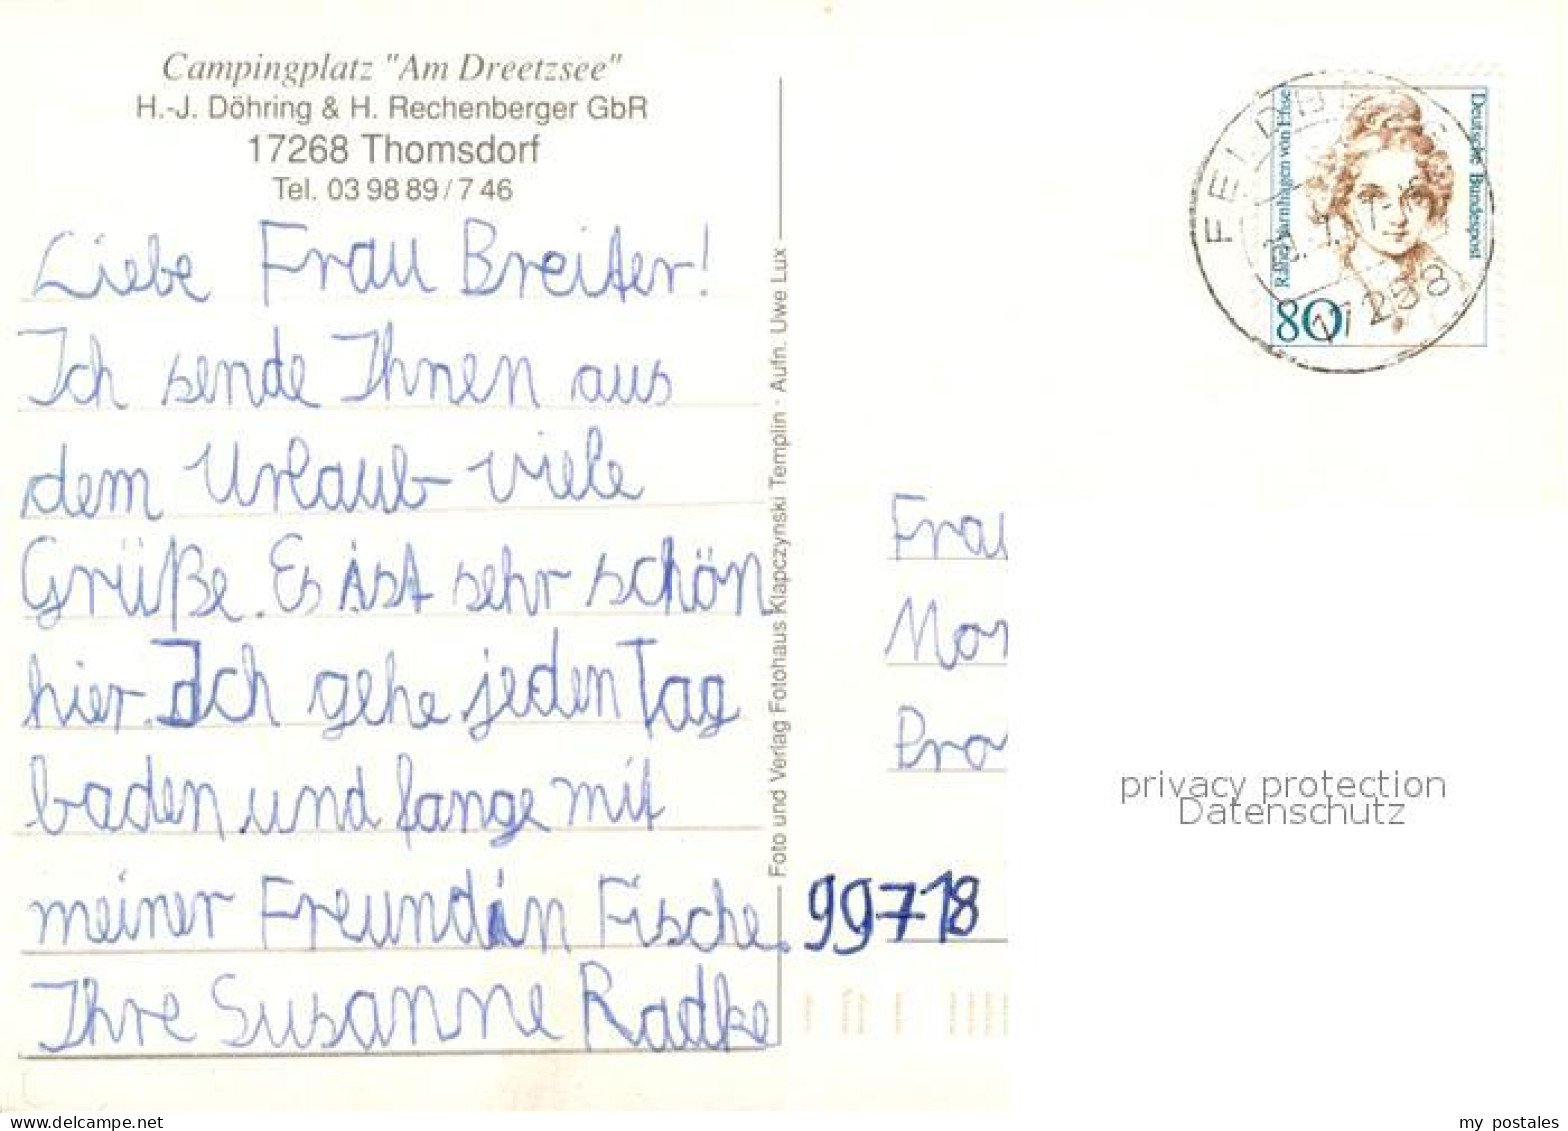 Campingplatz "Am Dreetzsee"
H.-J. Döhring & H. Rechenberger GbR
17268 Thomsdorf
Tel. 03 98 89 / 7 46
Liebe Frau Breiter!
Ich sende Ihnen aus
dem Urlaub viele
Grüße. Es ist sehr schön
hier. Ich gehe jeden Tag
baden und fange mit
meiner Freundin Fische.
Ihre Susanne Radke
Foto und Verlag Fotohaus Klapczynski Templin · Aufn. Uwe Lux
Deutsche Bundespost
Rahel Varnhagen von Ense
80
17258
Frau
99718
privacy protection
Datenschutz
my-postales.com
my postales